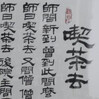 喫茶去
師問新到曾到此間
師曰喫茶去又問僧僧
師曰喫茶去後院主問